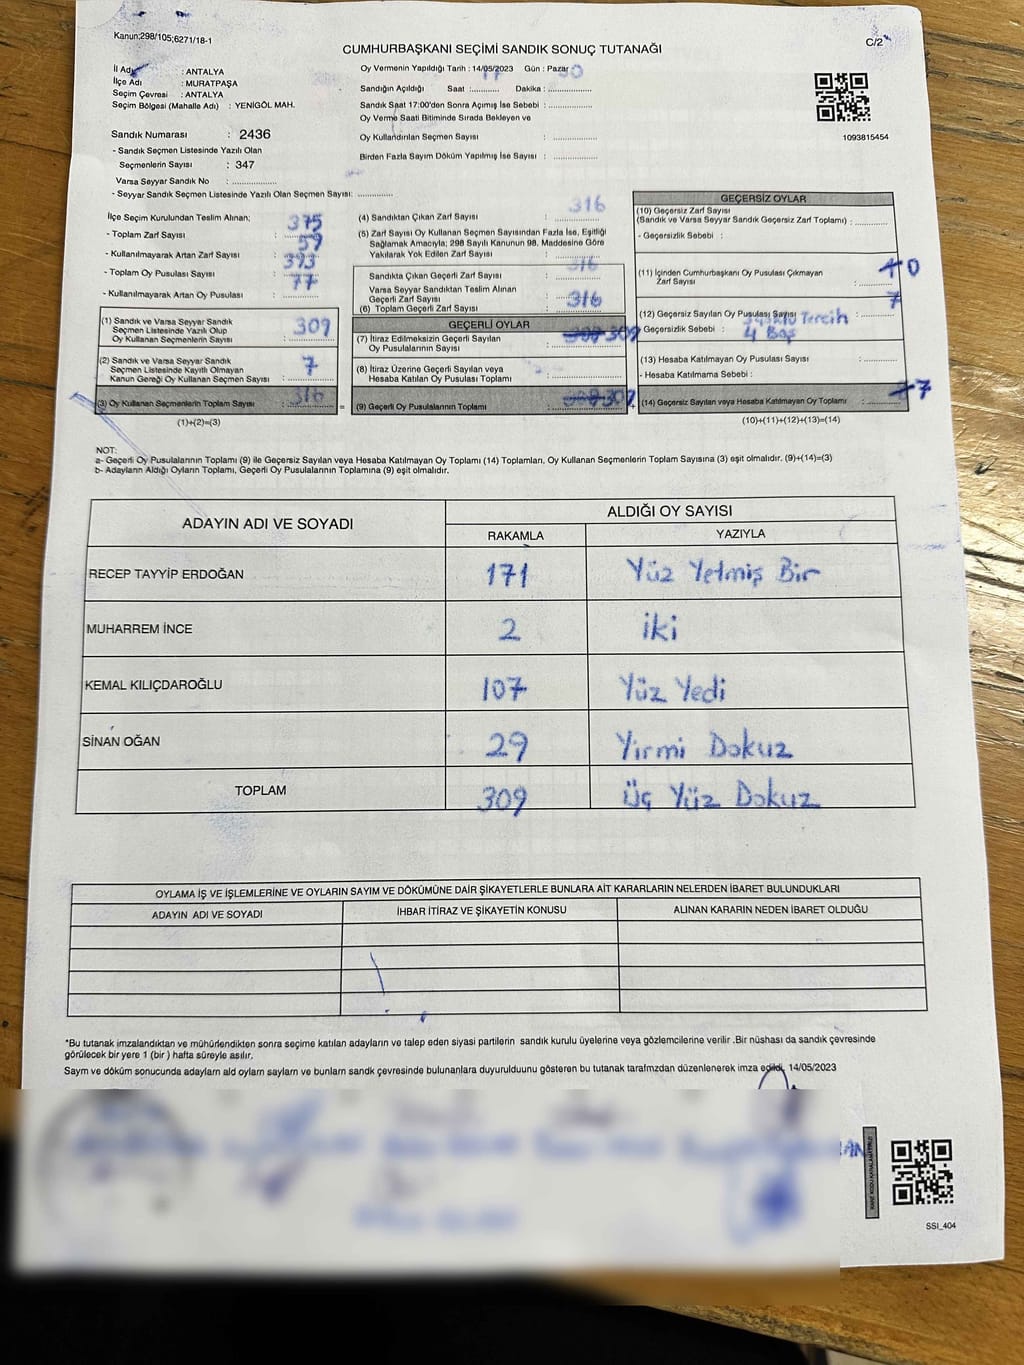 Kanun;298/105;6271/18-1
C/2
CUMHURBAŞKANI SEÇİMİ SANDIK SONUÇ TUTANAĞI
İl Adı : ANTALYA
İlçe Adı : MURATPAŞA
Seçim Çevresi : ANTALYA
Seçim Bölgesi (Mahalle Adı) : YENİGÖL MAH.
Sandık Numarası : 2436
- Sandık Seçmen Listesinde Yazılı Olan
Seçmenlerin Sayısı : 347
Varsa Seyyar Sandık No : ..............
- Seyyar Sandık Seçmen Listesinde Yazılı Olan Seçmen Sayısı: ............
Oy Vermenin Yapıldığı Tarih : 14/05/2023 Gün : Pazar
Sandığın Açıldığı Saat : 17 Dakika : 30
Sandık Saat 17:00'den Sonra Açımış İse Sebebi : ..............
Oy Verme Saati Bitiminde Sırada Bekleyen ve
Oy Kullandırılan Seçmen Sayısı : ..............
Birden Fazla Sayım Döküm Yapılmış İse Sayısı : ..............
1093815454
İlçe Seçim Kurulundan Teslim Alınan;
- Toplam Zarf Sayısı : 375
- Kullanılmayarak Artan Zarf Sayısı : 59
- Toplam Oy Pusulası Sayısı : 393
- Kullanılmayarak Artan Oy Pusulası : 77
(1) Sandık ve Varsa Seyyar Sandık
Seçmen Listesinde Yazılı Olup
Oy Kullanan Seçmenlerin Sayısı : 309
(2) Sandık ve Varsa Seyyar Sandık
Seçmen Listesinde Kayıtlı Olmayan
Kanun Gereği Oy Kullanan Seçmen Sayısı : 7
(3) Oy Kullanan Seçmenlerin Toplam Sayısı : 316 =
(1)+(2)=(3)
(4) Sandıktan Çıkan Zarf Sayısı : 316
(5) Zarf Sayısı Oy Kullanan Seçmen Sayısından Fazla İse, Eşitliği
Sağlamak Amacıyla; 298 Sayılı Kanunun 98. Maddesine Göre
Yakılarak Yok Edilen Zarf Sayısı : ..............
Sandıkta Çıkan Geçerli Zarf Sayısı : 316
Varsa Seyyar Sandıktan Teslim Alınan
Geçerli Zarf Sayısı : ..............
(6) Toplam Geçerli Zarf Sayısı : 316
GEÇERLİ OYLAR
(7) İtiraz Edilmeksizin Geçerli Sayılan
Oy Pusulalarının Sayısı : 309
(8) İtiraz Üzerine Geçerli Sayılan veya
Hesaba Katılan Oy Pusulası Toplamı : ..............
(9) Geçerli Oy Pusulalarının Toplamı : 309 +
GEÇERSİZ OYLAR
(10) Geçersiz Zarf Sayısı
(Sandık ve Varsa Seyyar Sandık Geçersiz Zarf Toplamı) : ..........
- Geçersizlik Sebebi :
(11) İçinden Cumhurbaşkanı Oy Pusulası Çıkmayan
Zarf Sayısı : 0
(12) Geçersiz Sayılan Oy Pusulası Sayısı : 7
Geçersizlik Sebebi : Tercih
4 Boş
(13) Hesaba Katılmayan Oy Pusulası Sayısı : ..........
- Hesaba Katılmama Sebebi :
(14) Geçersiz Sayılan veya Hesaba Katılmayan Oy Toplamı : 7
(10)+(11)+(12)+(13)=(14)
NOT:
a- Geçerli Oy Pusulalarının Toplamı (9) ile Geçersiz Sayılan veya Hesaba Katılmayan Oy Toplamı (14) Toplamları, Oy Kullanan Seçmenlerin Toplam Sayısına (3) eşit olmalıdır. (9)+(14)=(3)
b- Adayların Aldığı Oyların Toplamı, Geçerli Oy Pusulalarının Toplamına (9) eşit olmalıdır.
ADAYIN ADI VE SOYADI
ALDIĞI OY SAYISI
RAKAMLA YAZIYLA
RECEP TAYYİP ERDOĞAN 171 Yüz Yetmiş Bir
MUHARREM İNCE 2 iki
KEMAL KILIÇDAROĞLU 107 Yüz Yedi
SİNAN OĞAN 29 Yirmi Dokuz
TOPLAM 309 Üç Yüz Dokuz
OYLAMA İŞ VE İŞLEMLERİNE VE OYLARIN SAYIM VE DÖKÜMÜNE DAİR ŞİKAYETLERLE BUNLARA AİT KARARLARIN NELERDEN İBARET BULUNDUKLARI
ADAYIN ADI VE SOYADI İHBAR İTİRAZ VE ŞİKAYETİN KONUSU ALINAN KARARIN NEDEN İBARET OLDUĞU
*Bu tutanak imzalandıktan ve mühürlendikten sonra seçime katılan adayların ve talep eden siyasi partilerin sandık kurulu üyelerine veya gözlemcilerine verilir .Bir nüshası da sandık çevresinde
görülecek bir yere 1 (bir ) hafta süreyle asılır.
Saym ve döküm sonucunda adaylarn ald oylarn saylarn ve bunlarn sandk çevresinde bulunanlara duyurulduunu gösteren bu tutanak tarafmzdan düzenlenerek imza edildi. 14/05/2023
SSI_404